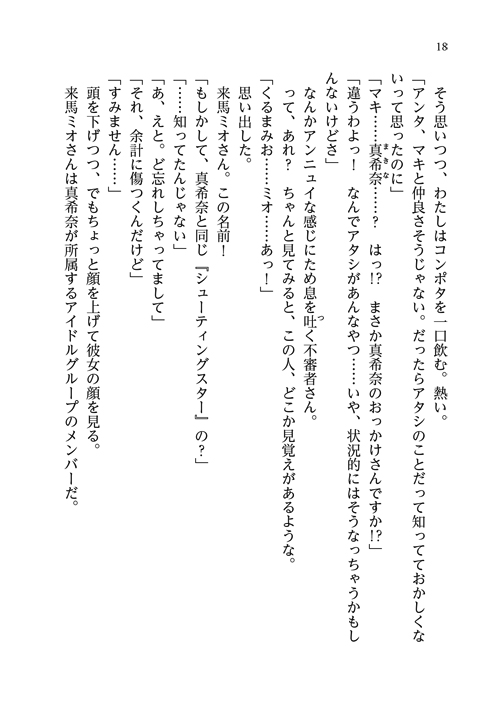 18
そう思いつつ、わたしはコンポタを一口飲む。熱い。
「アンタ、マキと仲良さそうじゃない。だったらアタシのことだって知ってておかしくな
いって思ったのに」
「マキ……真希奈……？　はっ!?　まさか真希奈のおっかけさんですか!?」
「違うわよっ！　なんでアタシがあんなやつ……いや、状況的にはそうなっちゃうかもし
んないけどさ」
なんかアンニュイな感じにため息を吐く不審者さん。
って、あれ？　ちゃんと見てみると、この人、どこか見覚えがあるような。
「くるまみお……ミオ……あっ！」
思い出した。
来馬ミオさん。この名前！
「もしかして、真希奈と同じ『シューティングスター』の？」
「……知ってたんじゃない」
「あ、えと。ど忘れしちゃってまして」
「それ、余計に傷つくんだけど」
「すみません……」
頭を下げつつ、でもちょっと顔を上げて彼女の顔を見る。
来馬ミオさんは真希奈が所属するアイドルグループのメンバーだ。